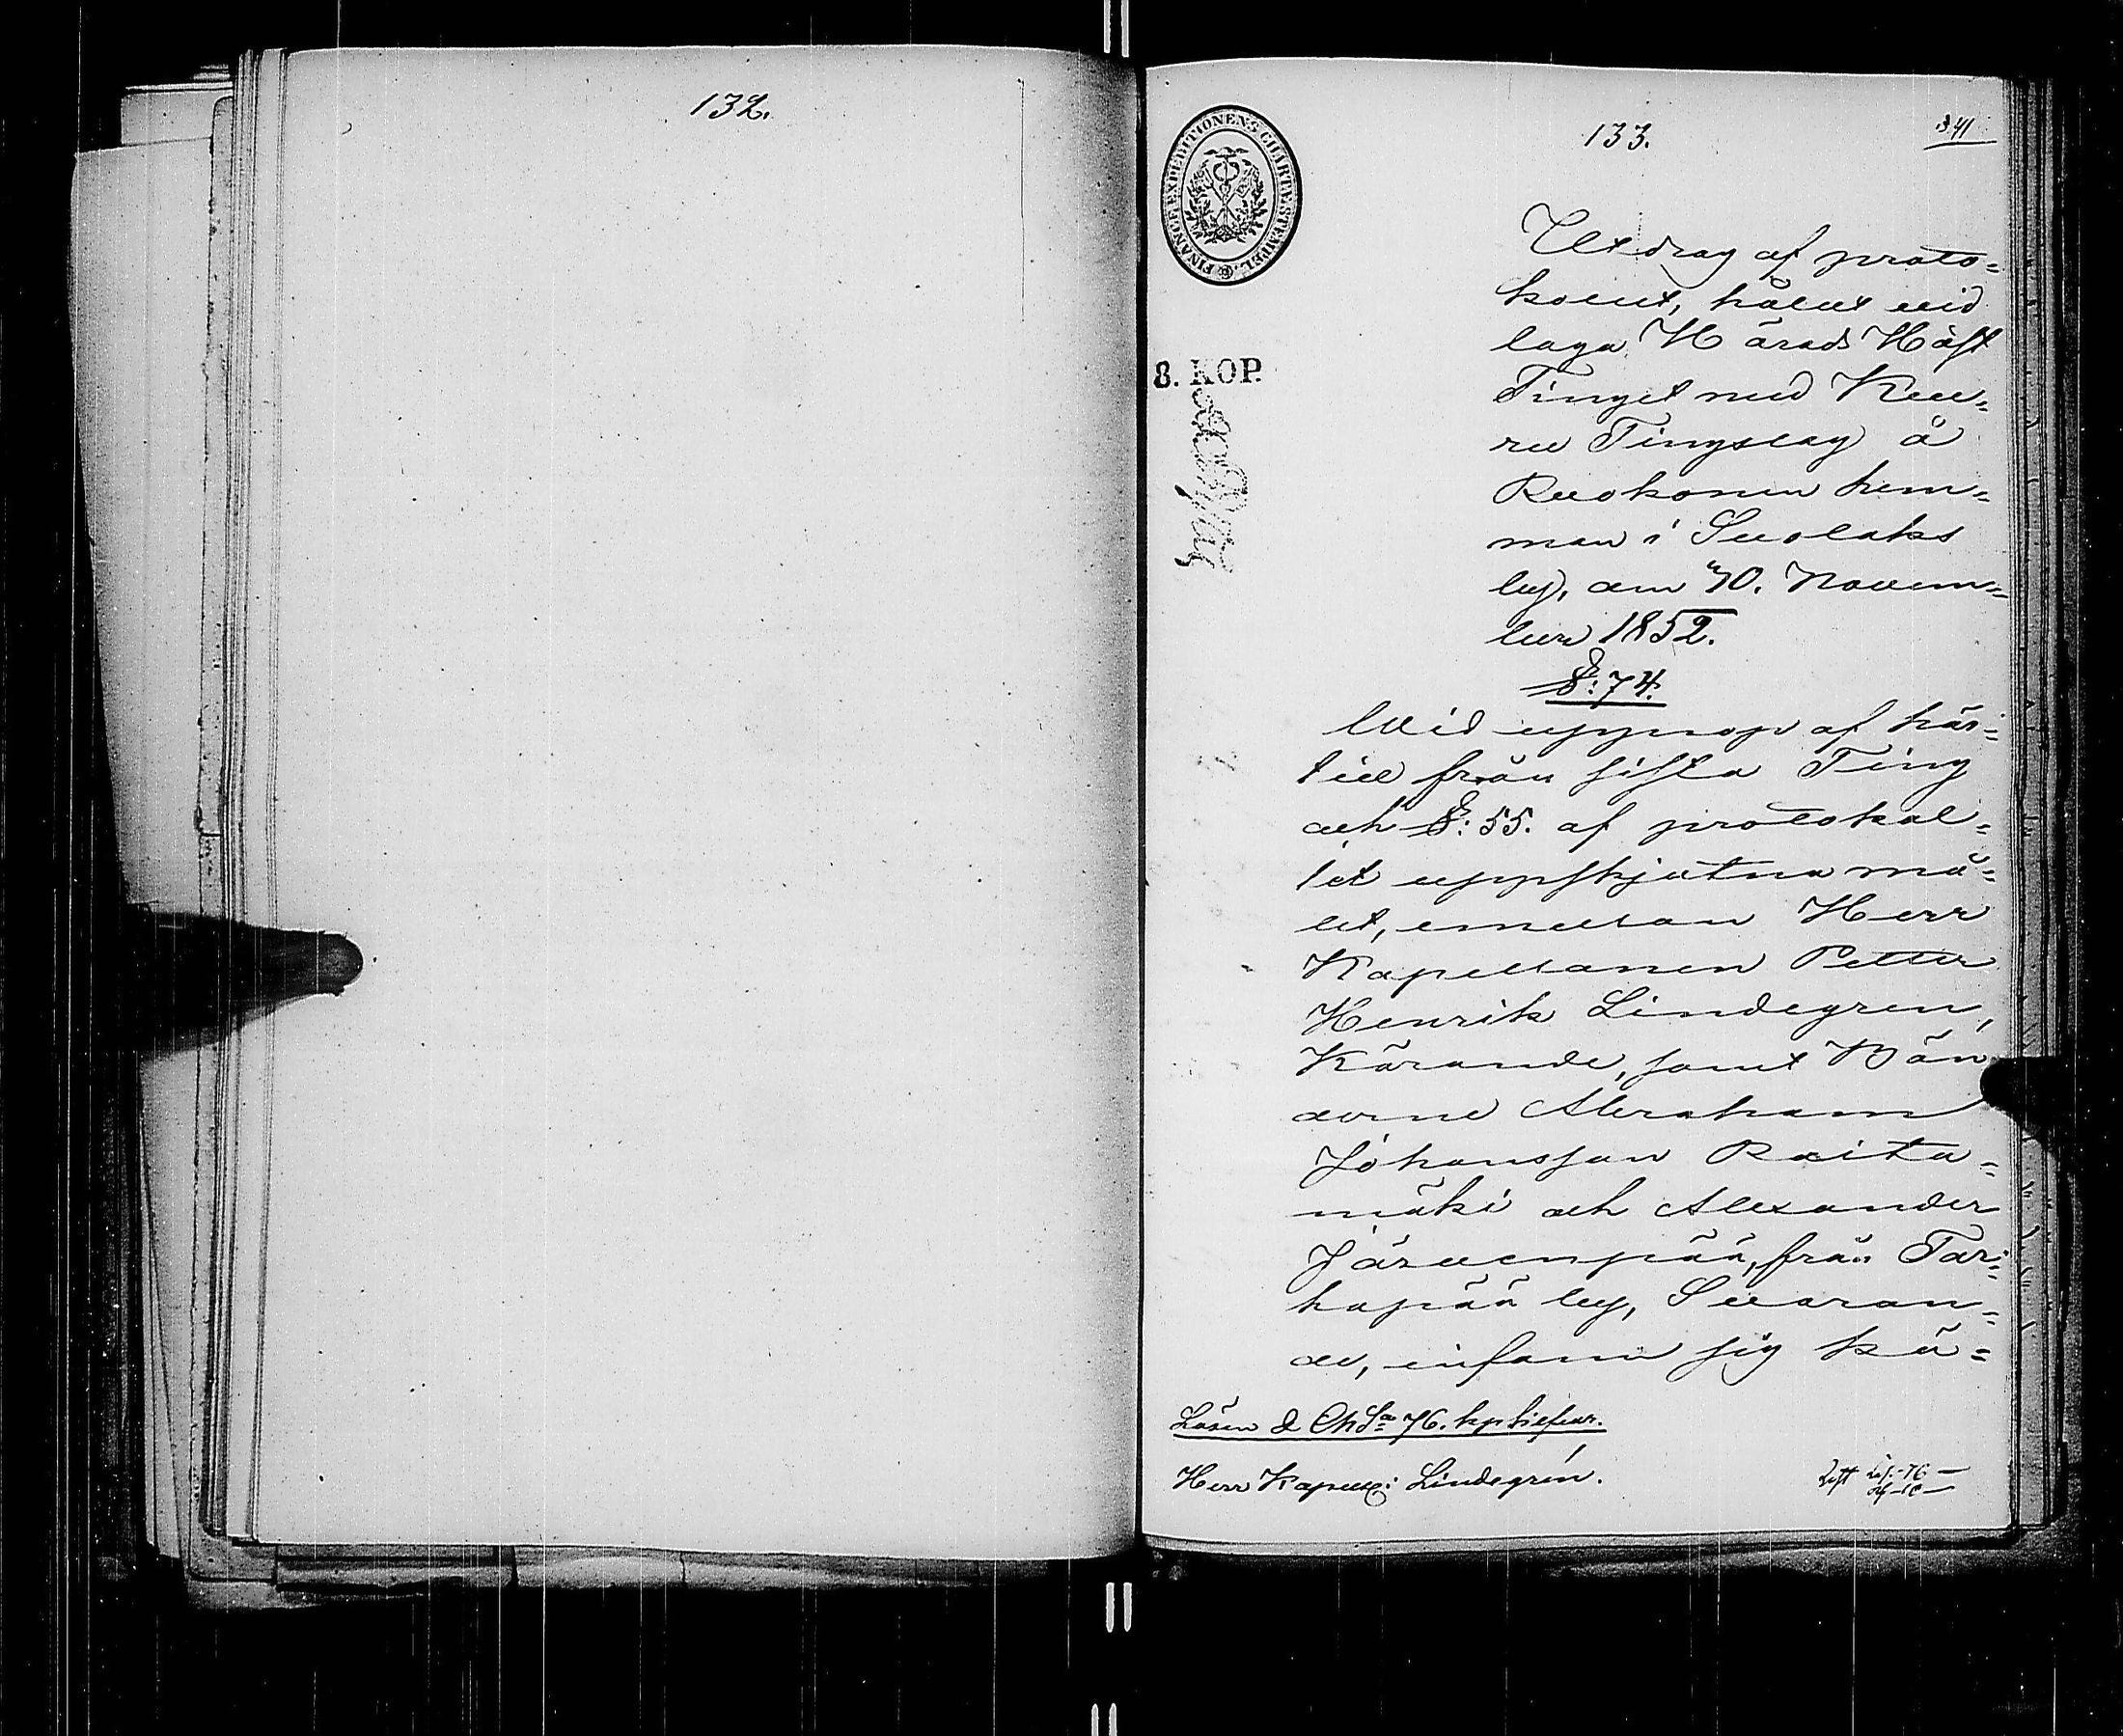 132.
133.
341
FINANCE EXPEDITIONENS CHARTÆ STEMPEL.
8. KOP.
Utdrag af proto=
kollet, hållet vid
laga Härads Höst
Tinget med Keu=
ru Tingslag å
Ruokonen hem=
man i Suolaks
by, den 10. Novem=
ber 1852.
§: 74.
Wid upprop af här=
till från sista Ting
och §: 55. af protokol=
let uppskjutna må=
let, emellan Herr
Kapellanen Petter
Henrik Lindegren,
Kärande, samt Bön
derne Abraham
Johansson Raita=
mäki och Alexander
Järvenpää, från Tar=
hapää by, Svaran=
de, infann sig kä=
Lösen & Ch S:a 76. kop silfver.
Herr Kapell: Lindegrén.